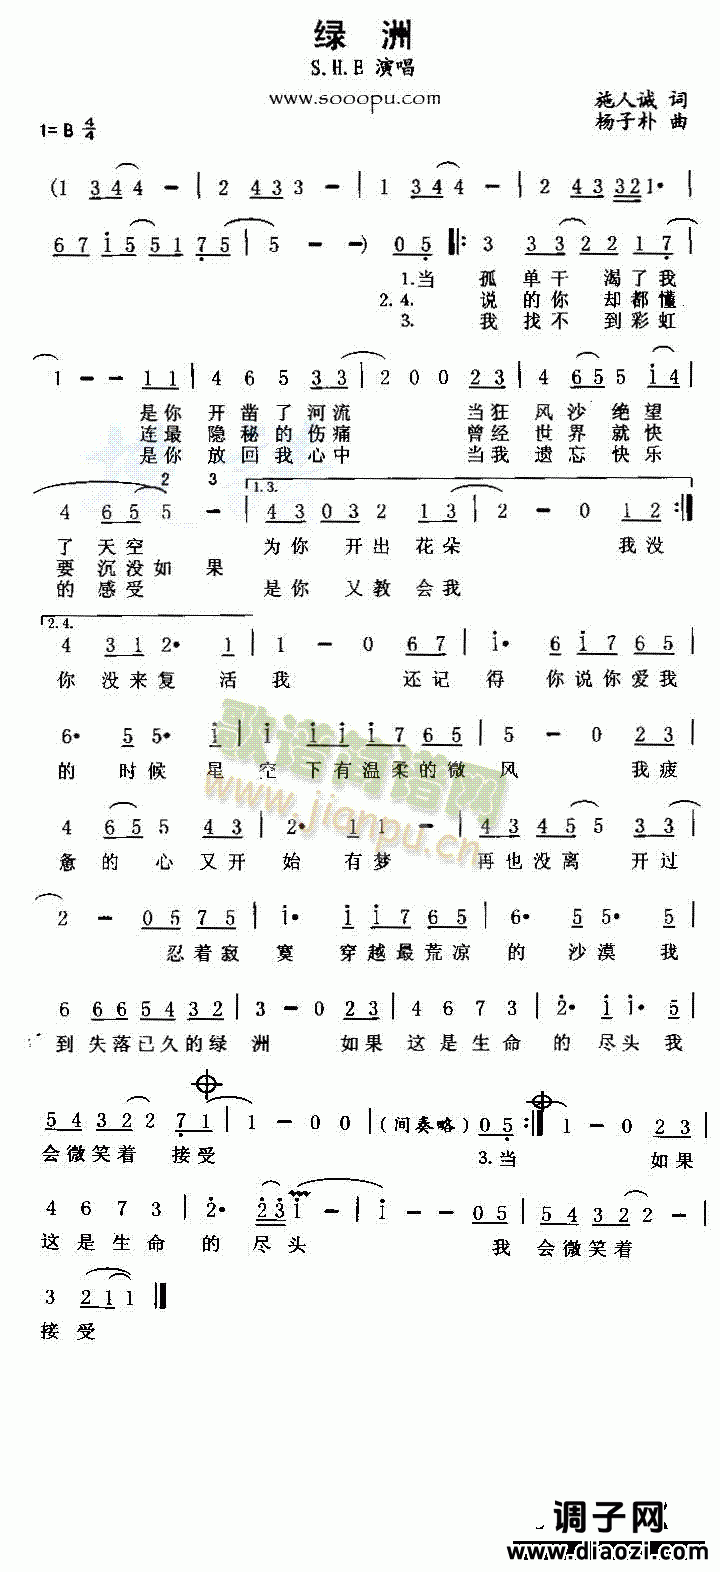 绿 洲
S.H.E 演唱
www.sooopu.com
施人诚 词
1=B 4/4
杨子朴 曲
(1 344 - | 2 433 - | 1 344 - | 2 43 321· |
67 i5 51 75 | 5 - -) 05 ‖: 3 33 22 17 |
1.当 孤 单干 渴了我
2.4. 说 的你 却都懂
3. 我 找不 到彩虹
1 - - 11 | 4 6 5 33 | 2 0 0 23 | 4 65 5 i4 |
是你 开 凿 了 河流 当狂 风 沙 绝 望
连最 隐 秘 的 伤痛 曾经 世 界 就 快
是你 放 回 我 心中 当我 遗 忘 快 乐
2 3
1.3.
4 65 5 - | 43 03 2 13 | 2 - 0 12 :‖
了 天空 为你 开出 花朵 我没
要 沉没如 果
的 感受 是你 又教 会我
2.4.
4 31 2· 1 | 1 - 0 67 | i· 6 i7 65 |
你 没来复 活 我 还记 得 你说你爱我
6· 5 5· i | i i i i7 65 | 5 - 0 23 |
的 时 候 是 空 下有温柔的微 风 我疲
歌谱简谱网
www.jianpu.cn
4 65 5 43 | 2· 1 1 - | 43 45 5 33 |
惫 的 心 又开 始 有 梦 再也没离 开过
2 - 05 75 | i· i i7 65 | 6· 5 5· 5 |
忍着寂 寞 穿越最荒凉 的 沙漠 我
6 66 54 32 | 3 - 0 23 | 4 6 7 3 | 2· i i· 5 |
到 失落已久的绿 洲 如果 这 是 生 命 的 尽头 我
54 32 2 71 | 1 - 0 0 | (间奏略) 05 :‖ 1 - 0 23 |
会微笑着 接受 3.当 如果
4 6 7 3 | 2· 23 i - | i - - 05 | 54 32 2 - |
这 是 生 命 的 尽 头 我 会微笑着
3 21 1 ‖
接 受
调子网
www.diaozi.com